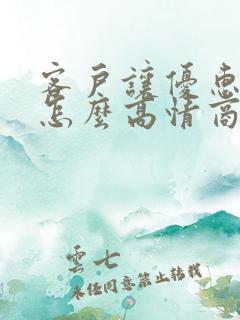 客戶讓優惠
怎麼高情商
雲七
未经同意禁止转载